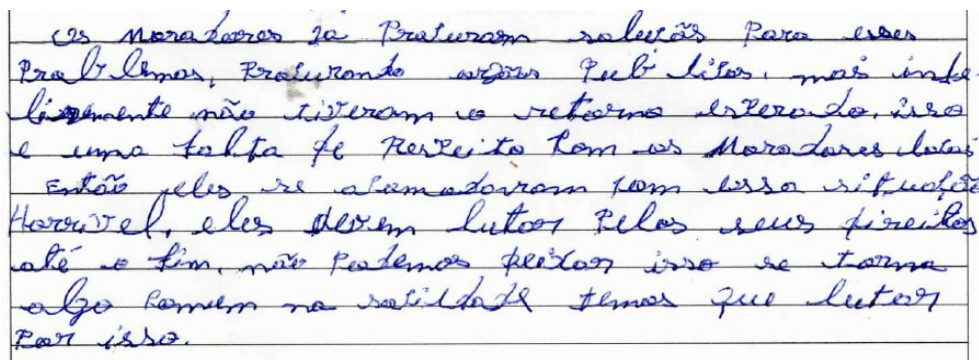 Os moradores ja Procuraram soluções Para esses
Problemas, Procurando orgãos Publicos, mas infe-
lizmente não tiveram o retorno esperado, isso
e uma falta de Respeito com os Moradores locais
Então eles se acomodaram com essa situação
Horrivel, eles devem lutar Pelos seus direitos
até o fim, não Podemos deixar isso se torna
algo comum na sociedade temos que lutar
Por isso.